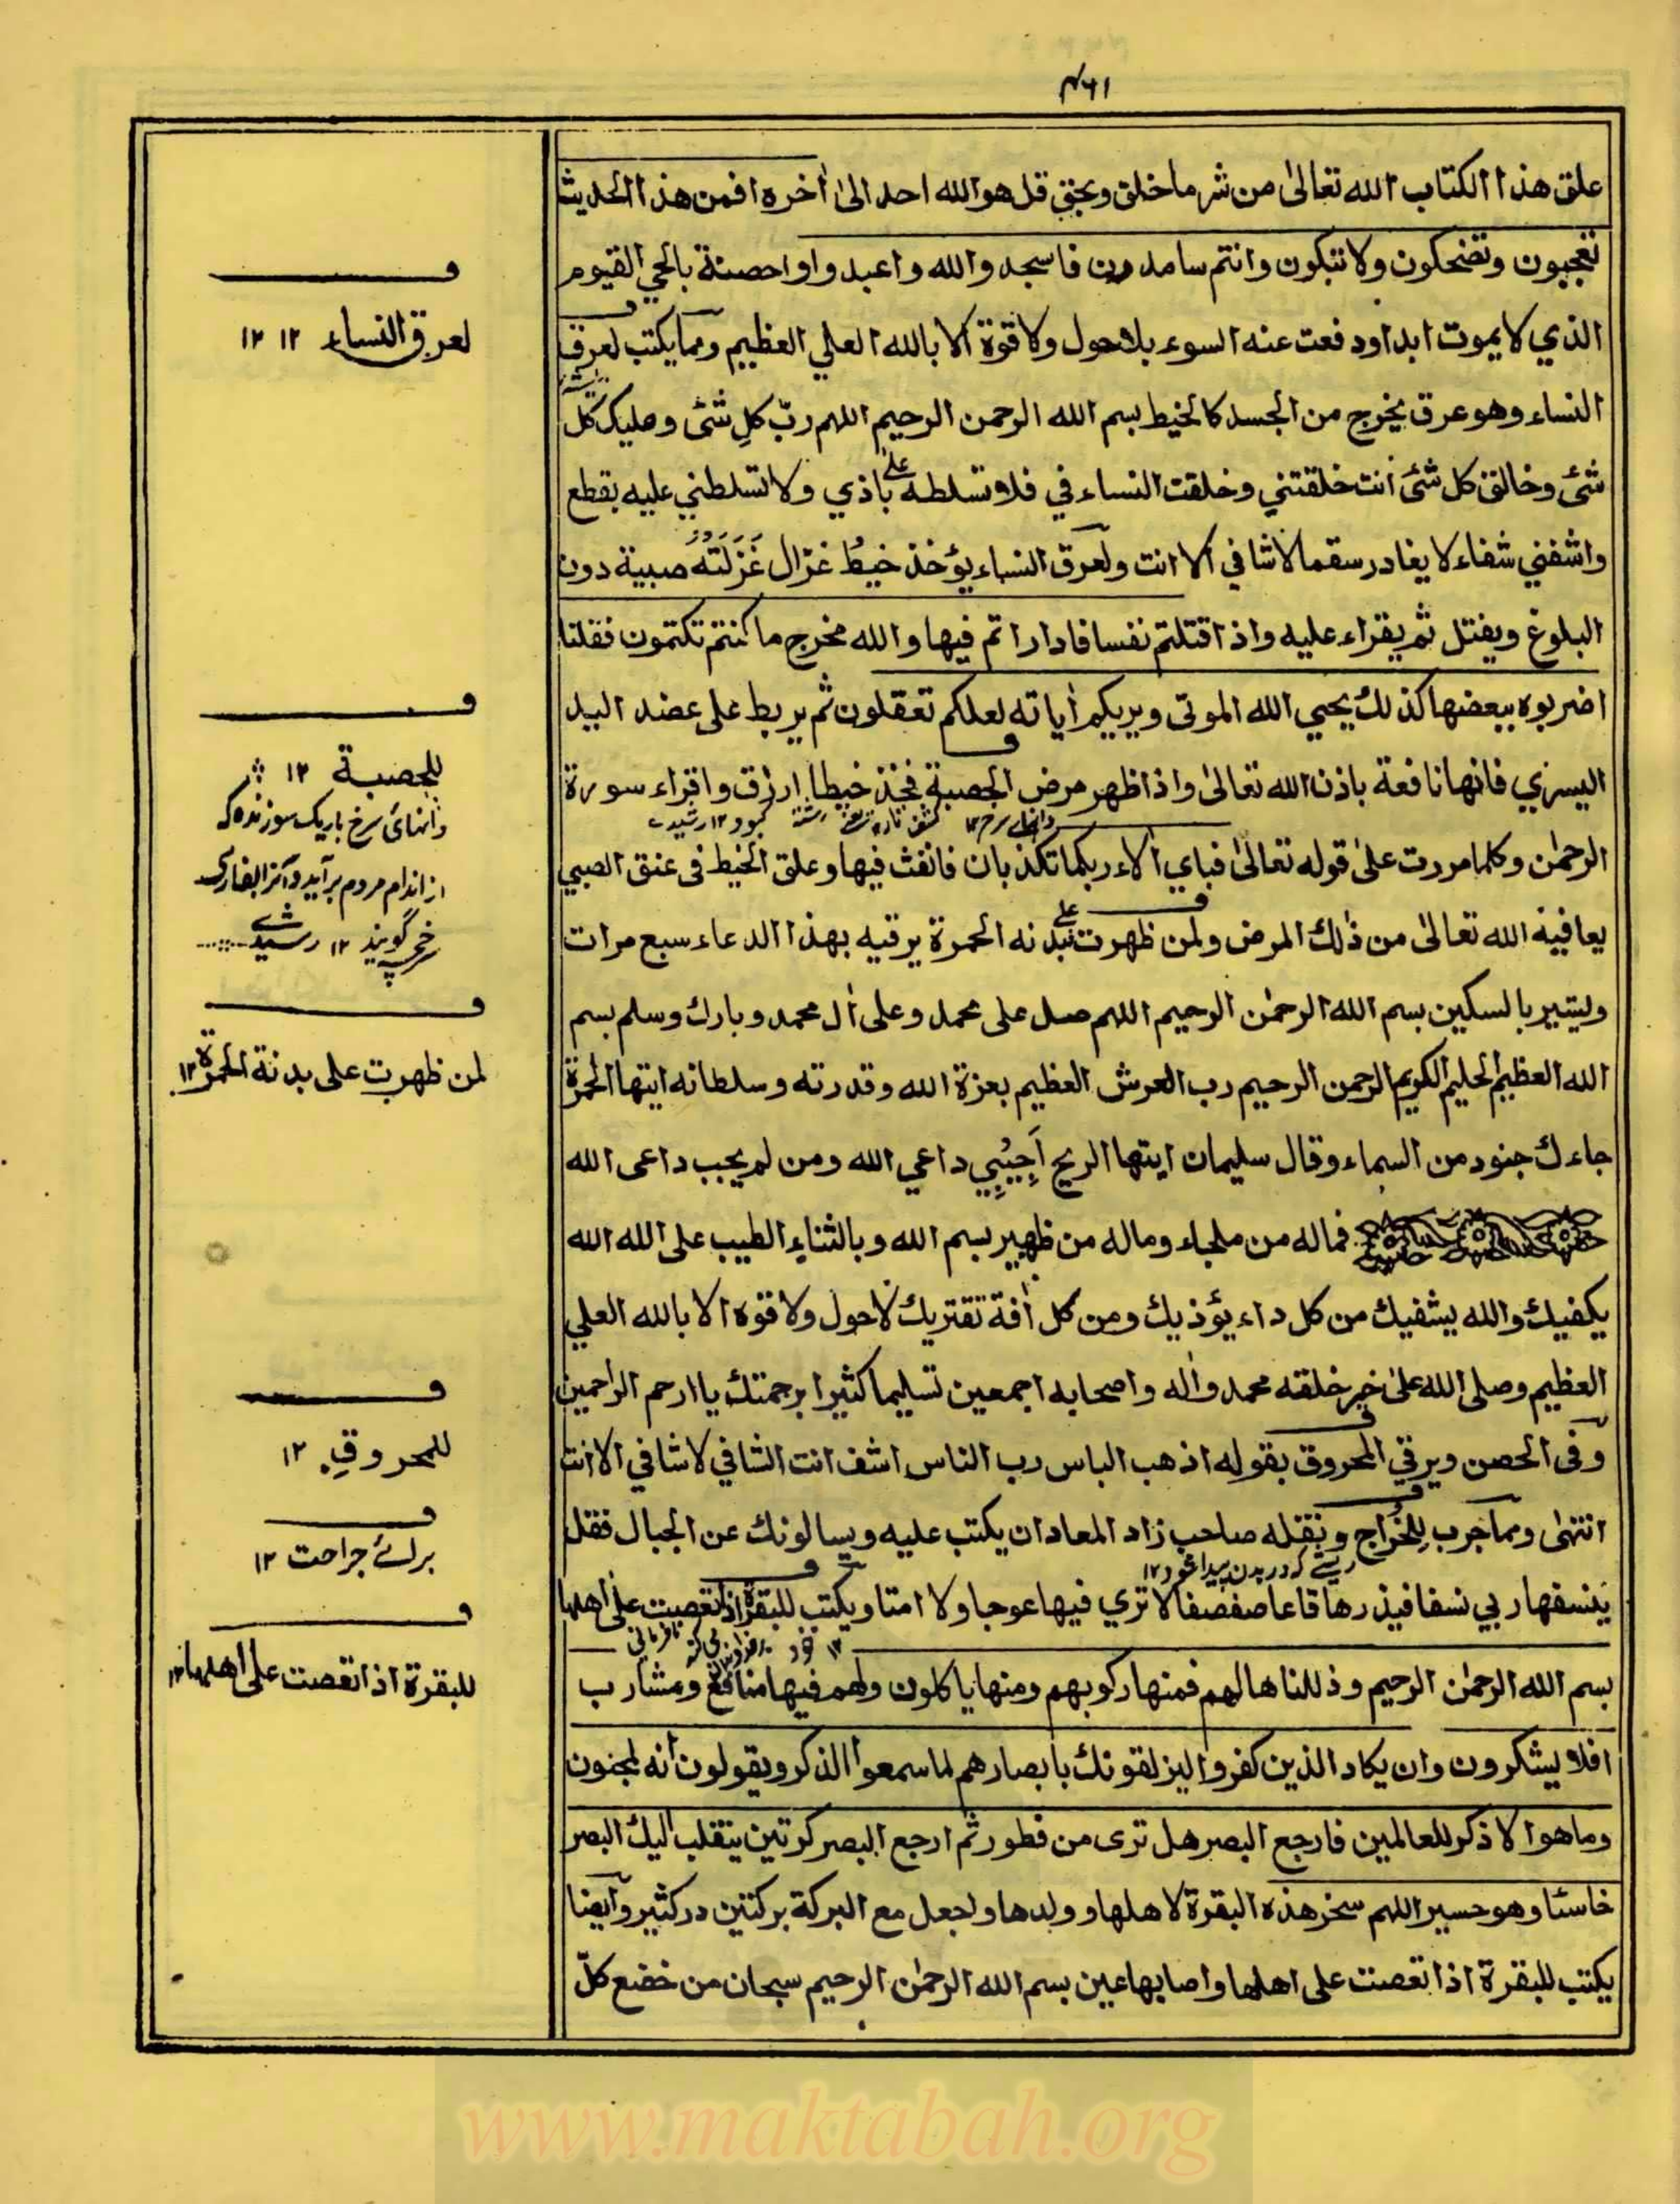 ۴۶۱
علق هذا الكتاب الله تعالىٰ من شر ما خلق وبحق قل هو الله احد الىٰ اٰخره افمن هذا الحديث
تعجبون وتضحكون ولا تبكون وانتم سامدون فاسجدوالله واعبدوا واحصنة بالحي القيوم
الذي لا يموت ابدا ودفعت عنه السوء بلاحول ولا قوة الا بالله العلي العظيم ومما يكتب لعرق
النساء وهو عرق يخرج من الجسد كالخيط بسم الله الرحمن الرحيم اللهم ربّ كلِ شئ ومليك كل
شئ وخالق كل شئ انت خلقتني وخلقت النساء في فلا تسلطه علىٰ باذي ولا تسلطني عليه بقطع
واشفني شفاء لا يغادر سقما لا شافي الا انت ولعرق النساء يؤخذ خيطُ غزال غَزَلَتْهُ صبية دون
البلوغ ويفتل ثم يقراء عليه واذا قتلتم نفسا فاداراتم فيها والله مخرج ما كنتم تكتمون فقلنا
اضربوه ببعضها كذلك يحيي الله الموتى ويريكم اٰياته لعلكم تعقلون ثم يربط على عضد اليد
اليسري فانها نافعة باذن الله تعالىٰ واذا ظهر مرض الحصبة فخذ خيطا ازرق واقراء سورة
الرحمٰن وكلما مررت علىٰ قوله تعالىٰ فباي الاء ربكما تكذبان فانفث فيها وعلق الخيط فى عنق الصبي
يعافيه الله تعالىٰ من ذٰلك المرض ولمن ظهرت علىٰ بدنه الحمرة يرقيه بهذا الدعاء سبع مرات
وليشير بالسكين بسم الله الرحمٰن الرحيم اللهم صل على محمد وعلى اٰل محمد وبارك وسلم بسم
الله العظيم الحليم الكريم الرحمن الرحيم رب العرش العظيم بعزة الله وقدرته وسلطانه ايتها الحمرة
جاءك جنود من السماء وقال سليمان ايتها الريح اَجِيْبِي داعي الله ومن لم يجب داعى الله
فماله من ملجاء وماله من ظهير بسم الله وبالثناء الطيب على الله الله
يكفيك والله يشفيك من كل داء يؤذيك ومن كل اٰفة تقتريك لاحول ولا قوه الا بالله العلي
العظيم وصلى الله علىٰ خير خلقه محمد واٰله واصحابه اجمعين تسليما كثيرا برحمتك يا ارحم الراحمين
وفى الحصن ويرقي المحروق بقوله اذهب الباس رب الناس اشف انت الشافي لا شافي الا انت
انتهٰى ومما جرب للخُرّاج ونقله صاحب زاد المعاد ان يكتب عليه ويسالونك عن الجبال فقل
ينسفها ربي نسفا فيذرها قاعا صفصفا لا تري فيها عوجا ولا امتا ويكتب للبقرة اذا تعصت علىٰ اهلها
بسم الله الرحمٰن الرحيم وذللناها لهم فمنها ركوبهم ومنها ياكلون ولهم فيها منافع ومشارب
افلا يشكرون وان يكاد الذين كفروا ليزلقونك بابصارهم لما سمعوا الذكر ويقولون انه لمجنون
وما هوا لا ذكر للعالمين فارجع البصر هل ترى من فطور ثم ارجع البصر كرتين ينقلب اليك البصر
خاسئا وهو حسير اللهم سخر هذه البقرة لاهلها وولدها واجعل مع البركة بركتين در كثير وايضا
يكتب للبقرة اذا تعصت على اهلها واصابها عين بسم الله الرحمٰن الرحيم سبحان من خضع كلّ
لعرق النساء ١٢ ١٢
للحصبة ١٢
دانهائ سرخ باريک سوزنده كه
از اندام مردم برآيد
سرخچه گويند ١٢ رشيدي
لمن ظهرت على بدنة الحمرة ١٢
للمحروق ١٢
برائے جراحت ١٢
للبقرة اذا تعصت على اهلها ١٢
www.maktabah.org